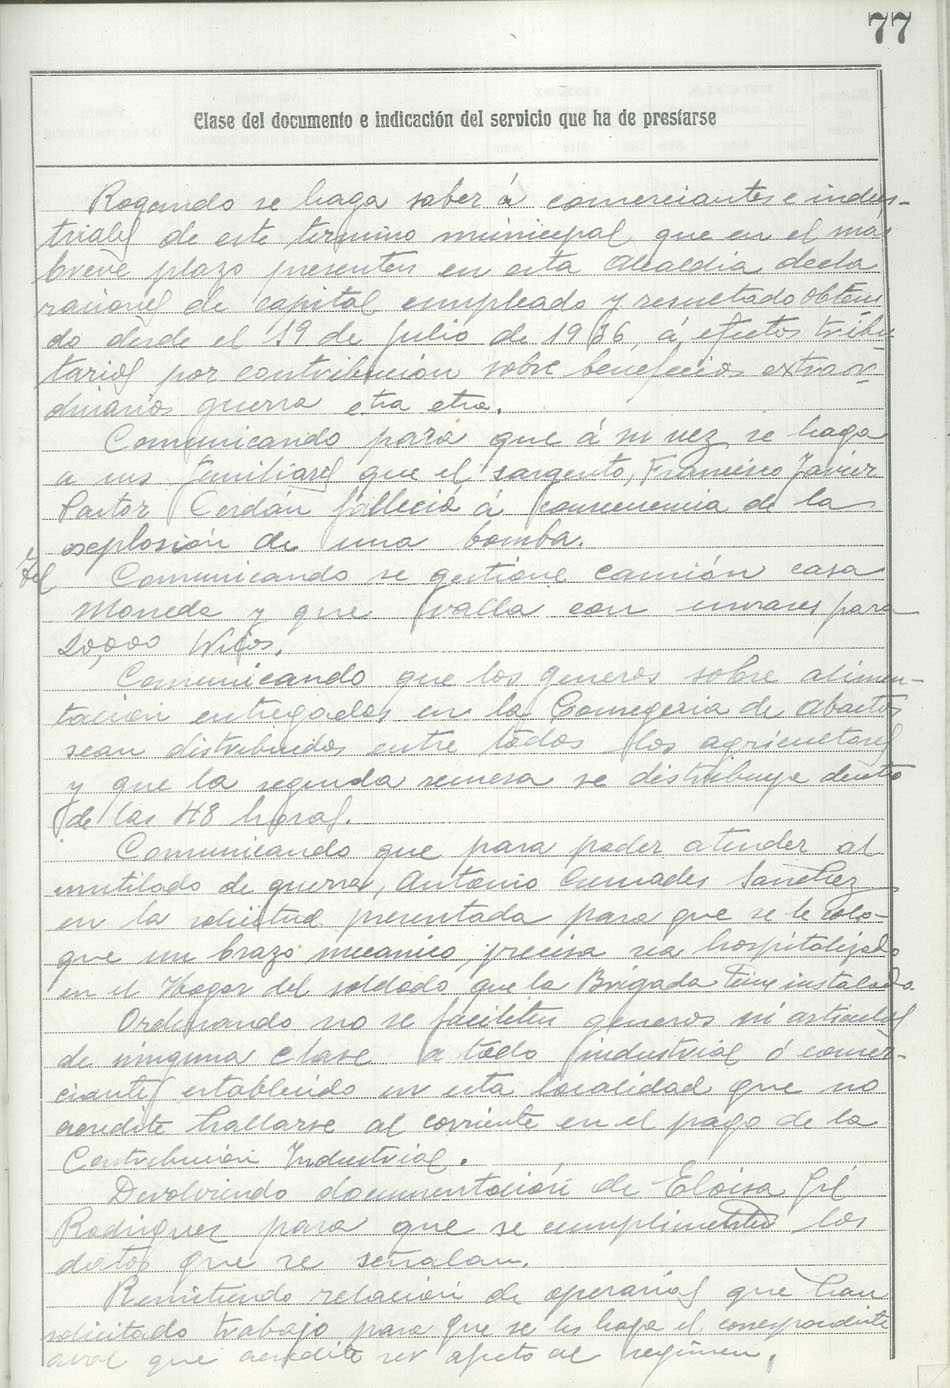 77
Clase del documento e indicación del servicio que ha de prestarse
Rogando se haga saber á comerciantes e indus-
triales de este término municipal que en el más
breve plazo presenten en esta Alcaldia decla
raciones de capital empleado y resultado obteni
do desde el 19 de julio de 1936, á efectos tribu
tarios por contribución sobre beneficios extraor
dinarios guerra etra etra.
Comunicando para que á su vez se haga
a sus familiares que el sargento, Francisco Javier
Pastor Cerdán falleció á consecuencia de la
explosión de una bomba.
Comunicando se gestione camión casa
Moneda y que valla con envases para
20,000 kilos.
Comunicando que los generos sobre alimen-
tación entregados en la Consegeria de Abastos
sean distribuidos entre todos los agricultores
y que la segunda remesa se distribuya dentro
de las 48 horas.
Comunicando que para poder atender al
mutilado de guerra, Antonio Cremades Sanchez
en la solicitud presentada para que se le colo-
que un brazo mecanico, precisa sea hospitalizado
en el Hogar del soldado que la Brigada tiene instalado.
Ordenando no se faciliten generos ni articulos
de ninguna clase a todo industrial ó comer-
ciante establecido en esta localidad que no
acredite hallarse al corriente en el pago de la
Contribución Industrial.
Devolviendo documentación de Eloisa Gil
Rodriguez para que se cumplimenten los
datos que se señalan.
Remitiendo relación de operarios que han
solicitado trabajo para que se les haga el correspondiente
aval que acredite ser afecto al regimen.